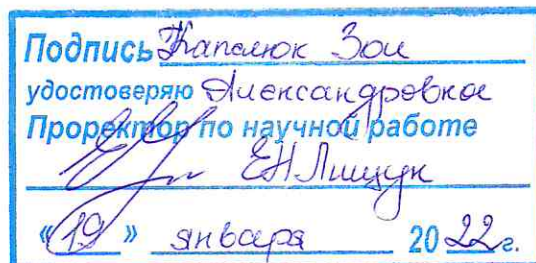 Подпись Капелюк Зои
удостоверяю Александровной
Проректор по научной работе
ЕН Лищук
«19» января 2022г.